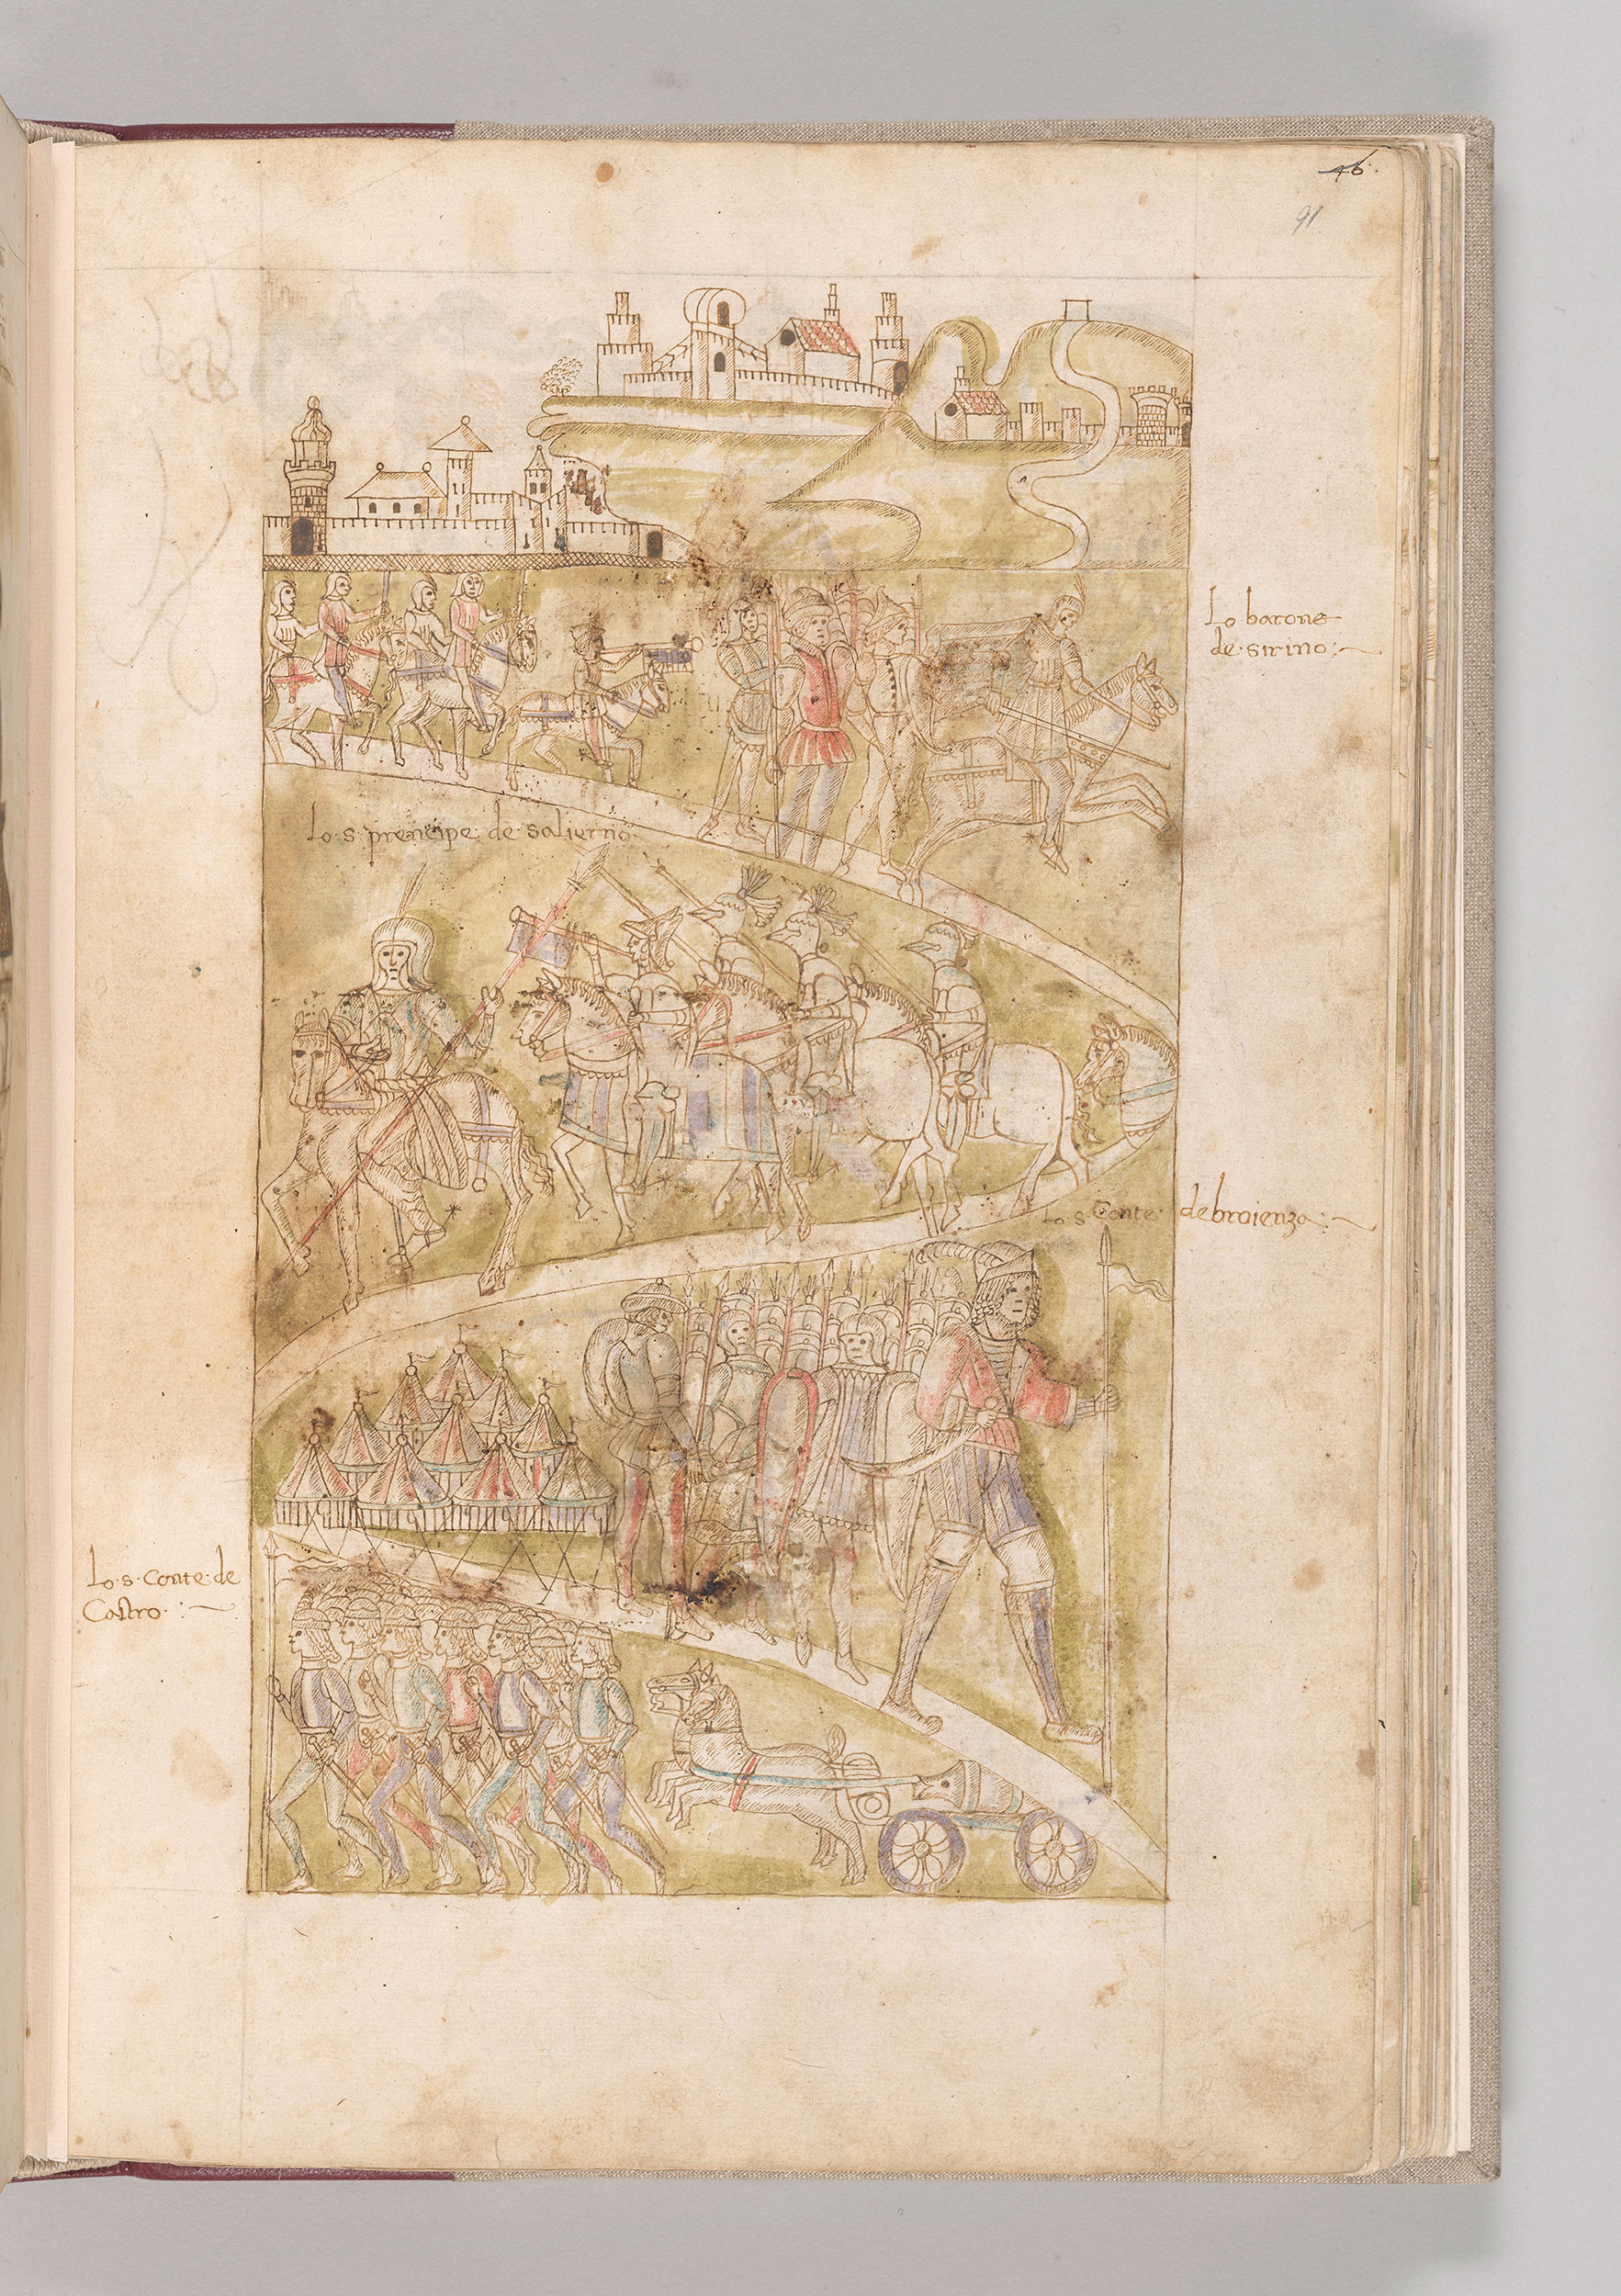 46.
91
Lo barone
de sirino:~
Lo·s·prencipe de salierno
Lo·s·Conte· debroienza:~
Lo·s·Conte·de
Castro·:~